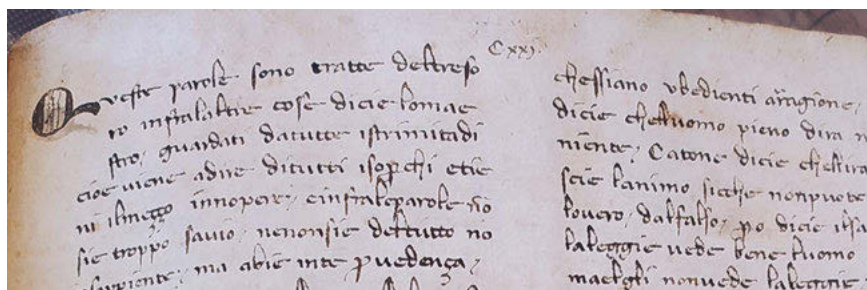 Cxxj.
Queste parole sono tratte deltreso
ro infralaltre cose dicie lomae
stro, guardati datutte istrimitadi
cioe viene adire ditutti isoꝑchi etie
ni ilmeço innopere, einfraleparole nō
sie troppo savio, nenonsie deltutto no
ma abie inte ꝓvedença,
chessiano vbedienti arragione,
dicie chelluomo pieno dira n
niente, Catone dicie chellira
scie lanimo sicche nonpuote
lovero, dalfalso, ꝑo dicie ilsa
laleggie vede bene luomo
maeglli nonvede laleggie